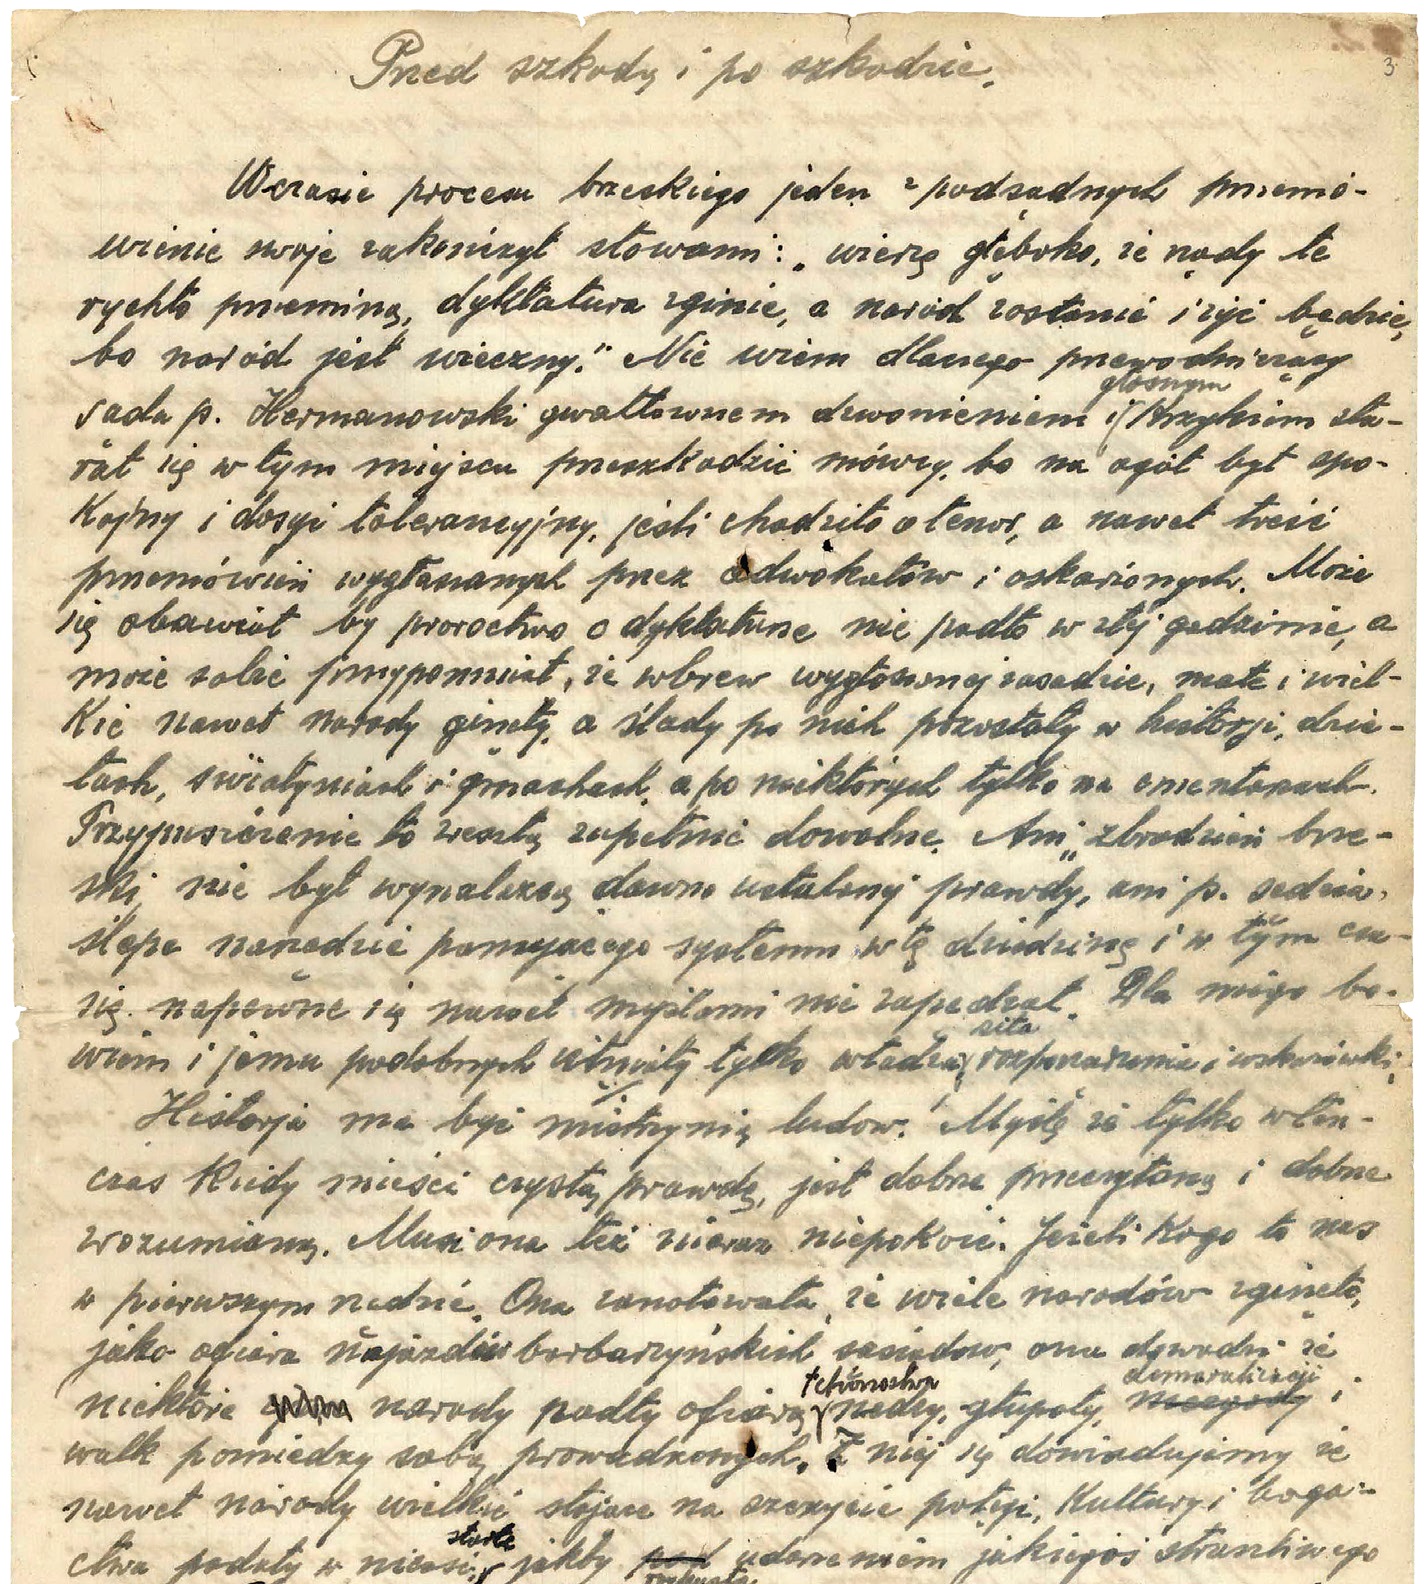 Przed szkodą i po szkodzie.
3
W czasie procesu brzeskiego jeden z podsądnych przemó-
wienie swoje zakończył słowami: „wierzę głęboko, że rządy te
rychło przeminą, dyktatura zginie, a naród zostanie i żyć będzie,
bo naród jest wieczny." Nie wiem dlaczego przewodniczący
głośnym
sądu p. Hermanowski gwałtownem dzwonieniem i krzykiem sta-
rał się w tym miejscu przeszkodzić mówcy, bo na ogół był spo-
kojny i dosyć tolerancyjny, jeśli chodziło o tenor, a nawet treść
przemówień wygłaszanych przez adwokatów i oskarżonych. Może
się obawiał by proroctwo o dyktaturze nie padło w złej godzinie, a
może sobie przypomniał, że wbrew wygłoszonej zasadzie, małe i wiel-
kie nawet narody ginęły, a ślady po nich pozostały w historji, dzie-
łach, świątyniach i gmachach, a po niektórych tylko na cmentarzach.
Przypuszczenie to zresztą zupełnie dowolne. Ani „zbrodzień brze-
ski" nie był wynalazcą dawno ustalonej prawdy, ani p. sędzia,
ślepe narzędzie panującego systemu w tę dziedzinę i w tym cza-
się napewne się nawet myślami nie zapędzał. Dla niego bo-
siła
wiem i jemu podobnych istniały tylko władza, rozporządzenia i wskazówki.
Historja ma być mistrzynią ludów. Myślę że tylko wten-
czas kiedy mieści czystą prawdę, jest dobrze przeczytaną i dobrze
zrozumianą. Musi ona też nieraz niepokoić. Jeżeli kogo to nas
w pierwszym rzędzie. Ona zanotowała, że wiele narodów zginęło,
jako ofiara najazdów barbarzyńskich sąsiadów, ona dowodzi że
tchórzostwa demoralizacji
niektóre narody padły ofiarą nędzy, głupoty, niezgody i
walk pomiędzy sobą prowadzonych. Z niej się dowiadujemy że
nawet narody wielkie stojące na szczycie potęgi, kultury i boga-
starte
ctwa padały w nicość, jakby pod uderzeniem jakiegoś straszliwego